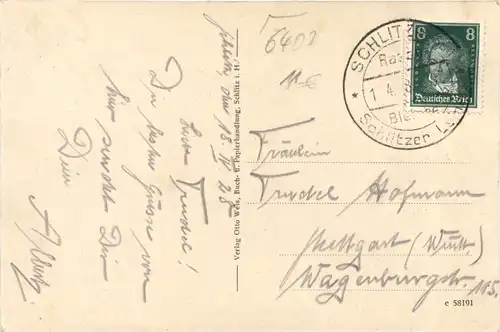 Schlitz, den 18. IV 28
Liebe Trudel!
Die besten Grüsse von
hier sendet Dir
Dein
Albert
Verlag Otto Weis, Buch- u. Papierhandlung, Schlitz i. H.
6402
11.-€
SCHLITZ
1 4
Schlitzer
8 8
Deutsches Reich
Fräulein
Trudel Hofmann
Stuttgart (Württ.)
Wagenburgstr. 145.
c 58191